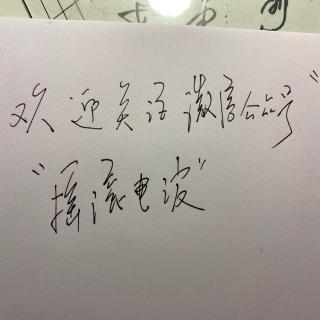 欢迎关注微信公众号"
"摇滚电波"